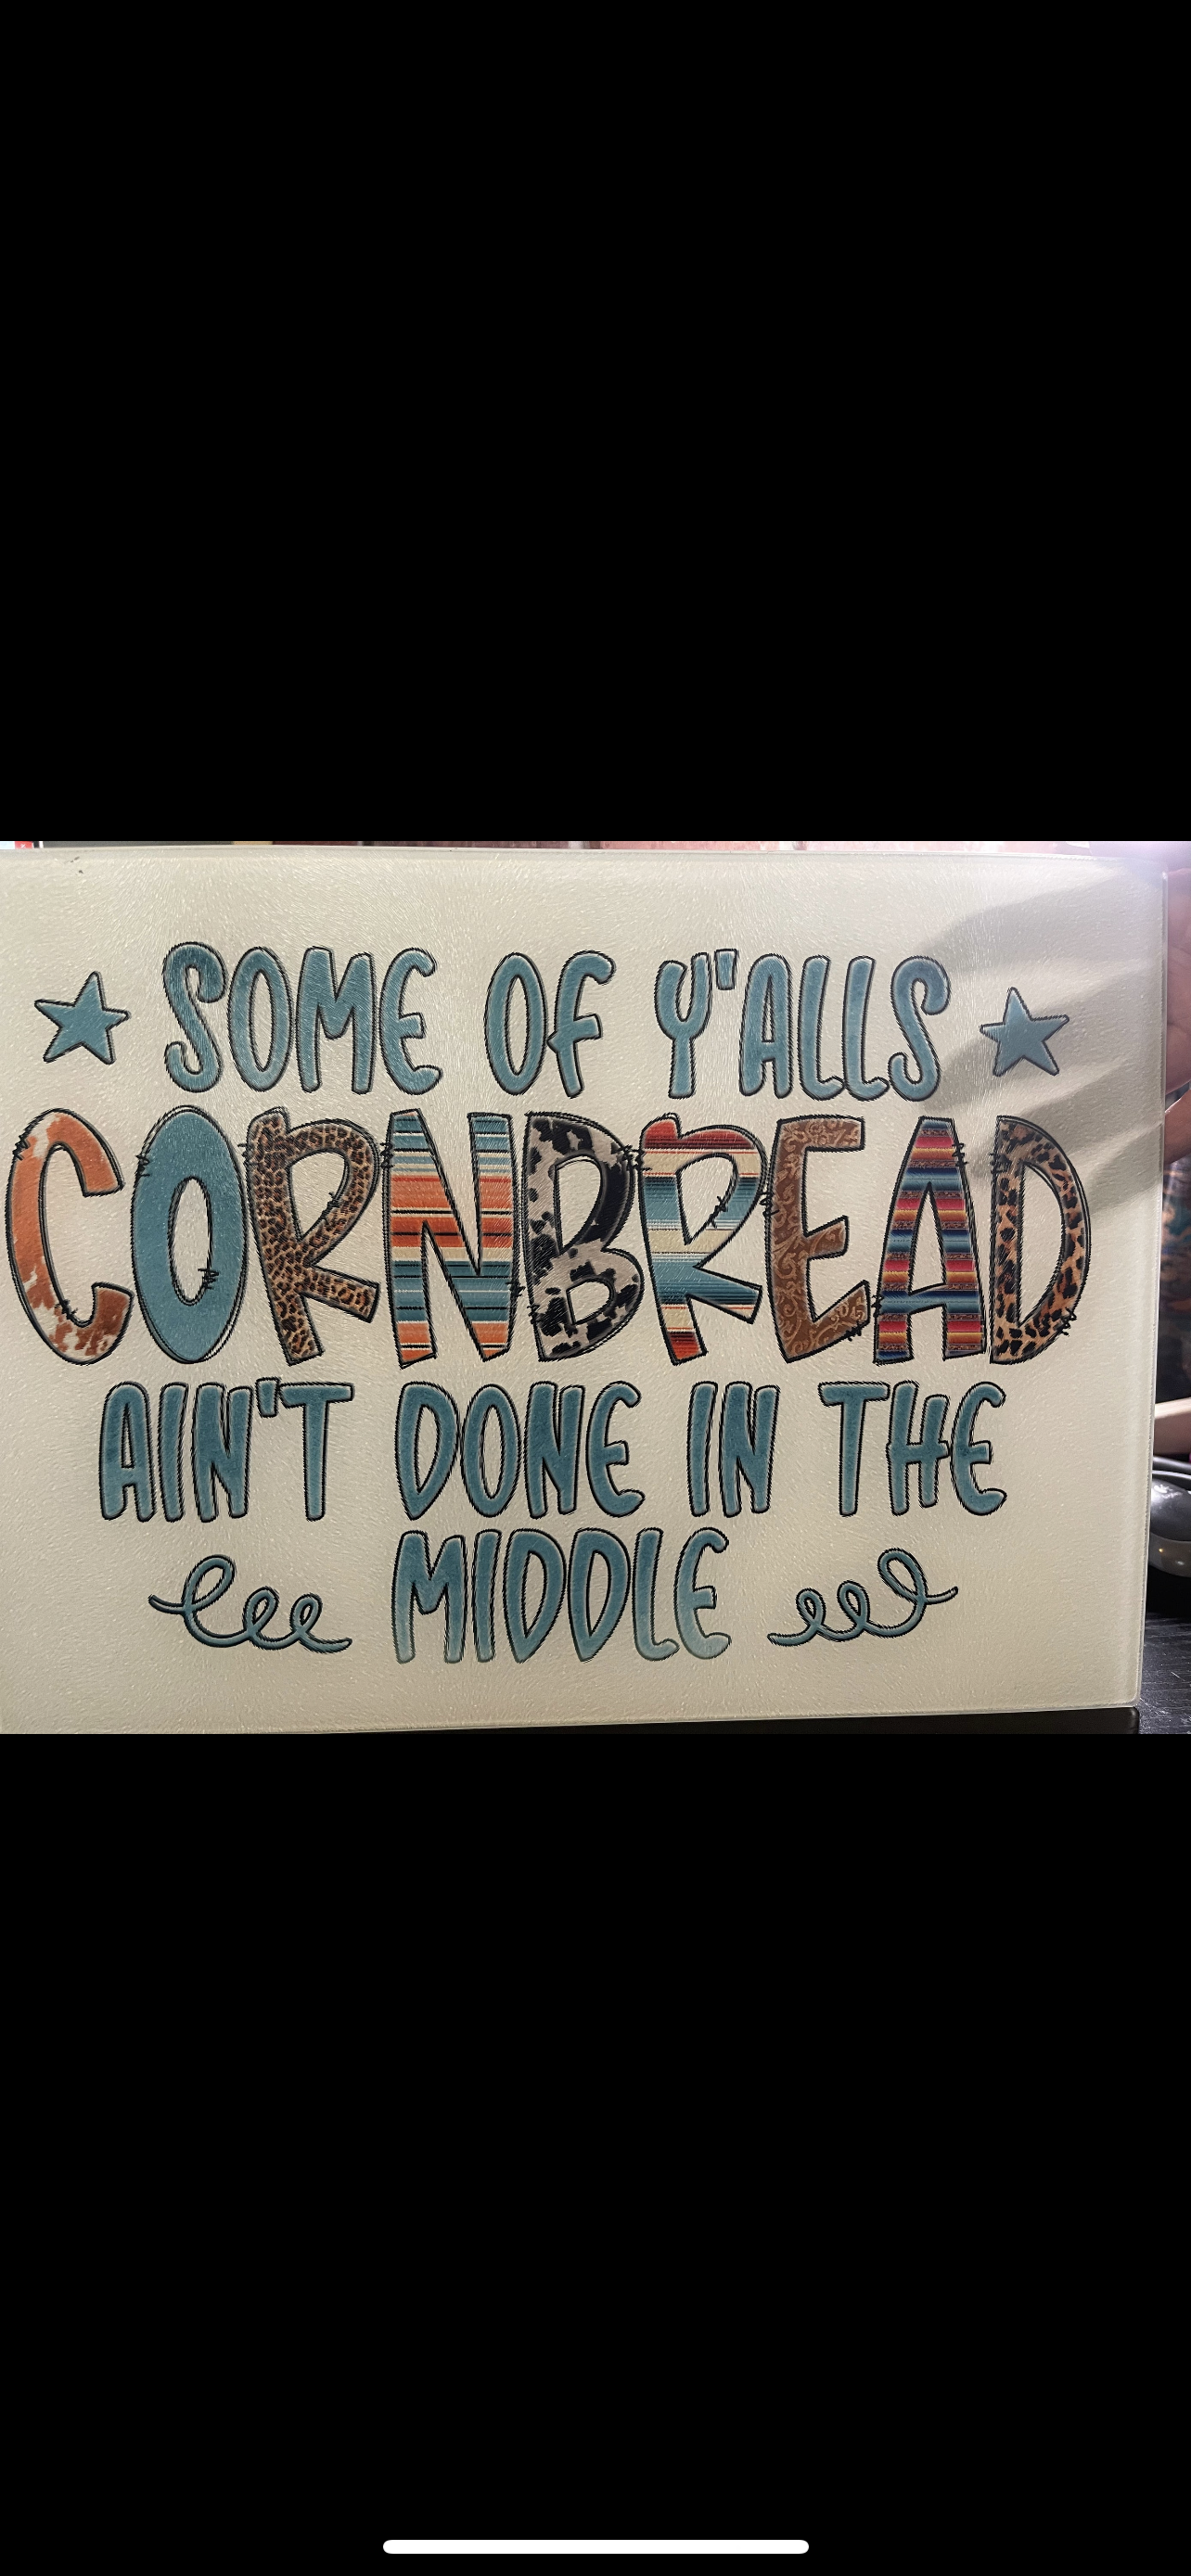 SOME OF Y'ALLS
CORNBREAD
AIN'T DONE IN THE
MIDDLE